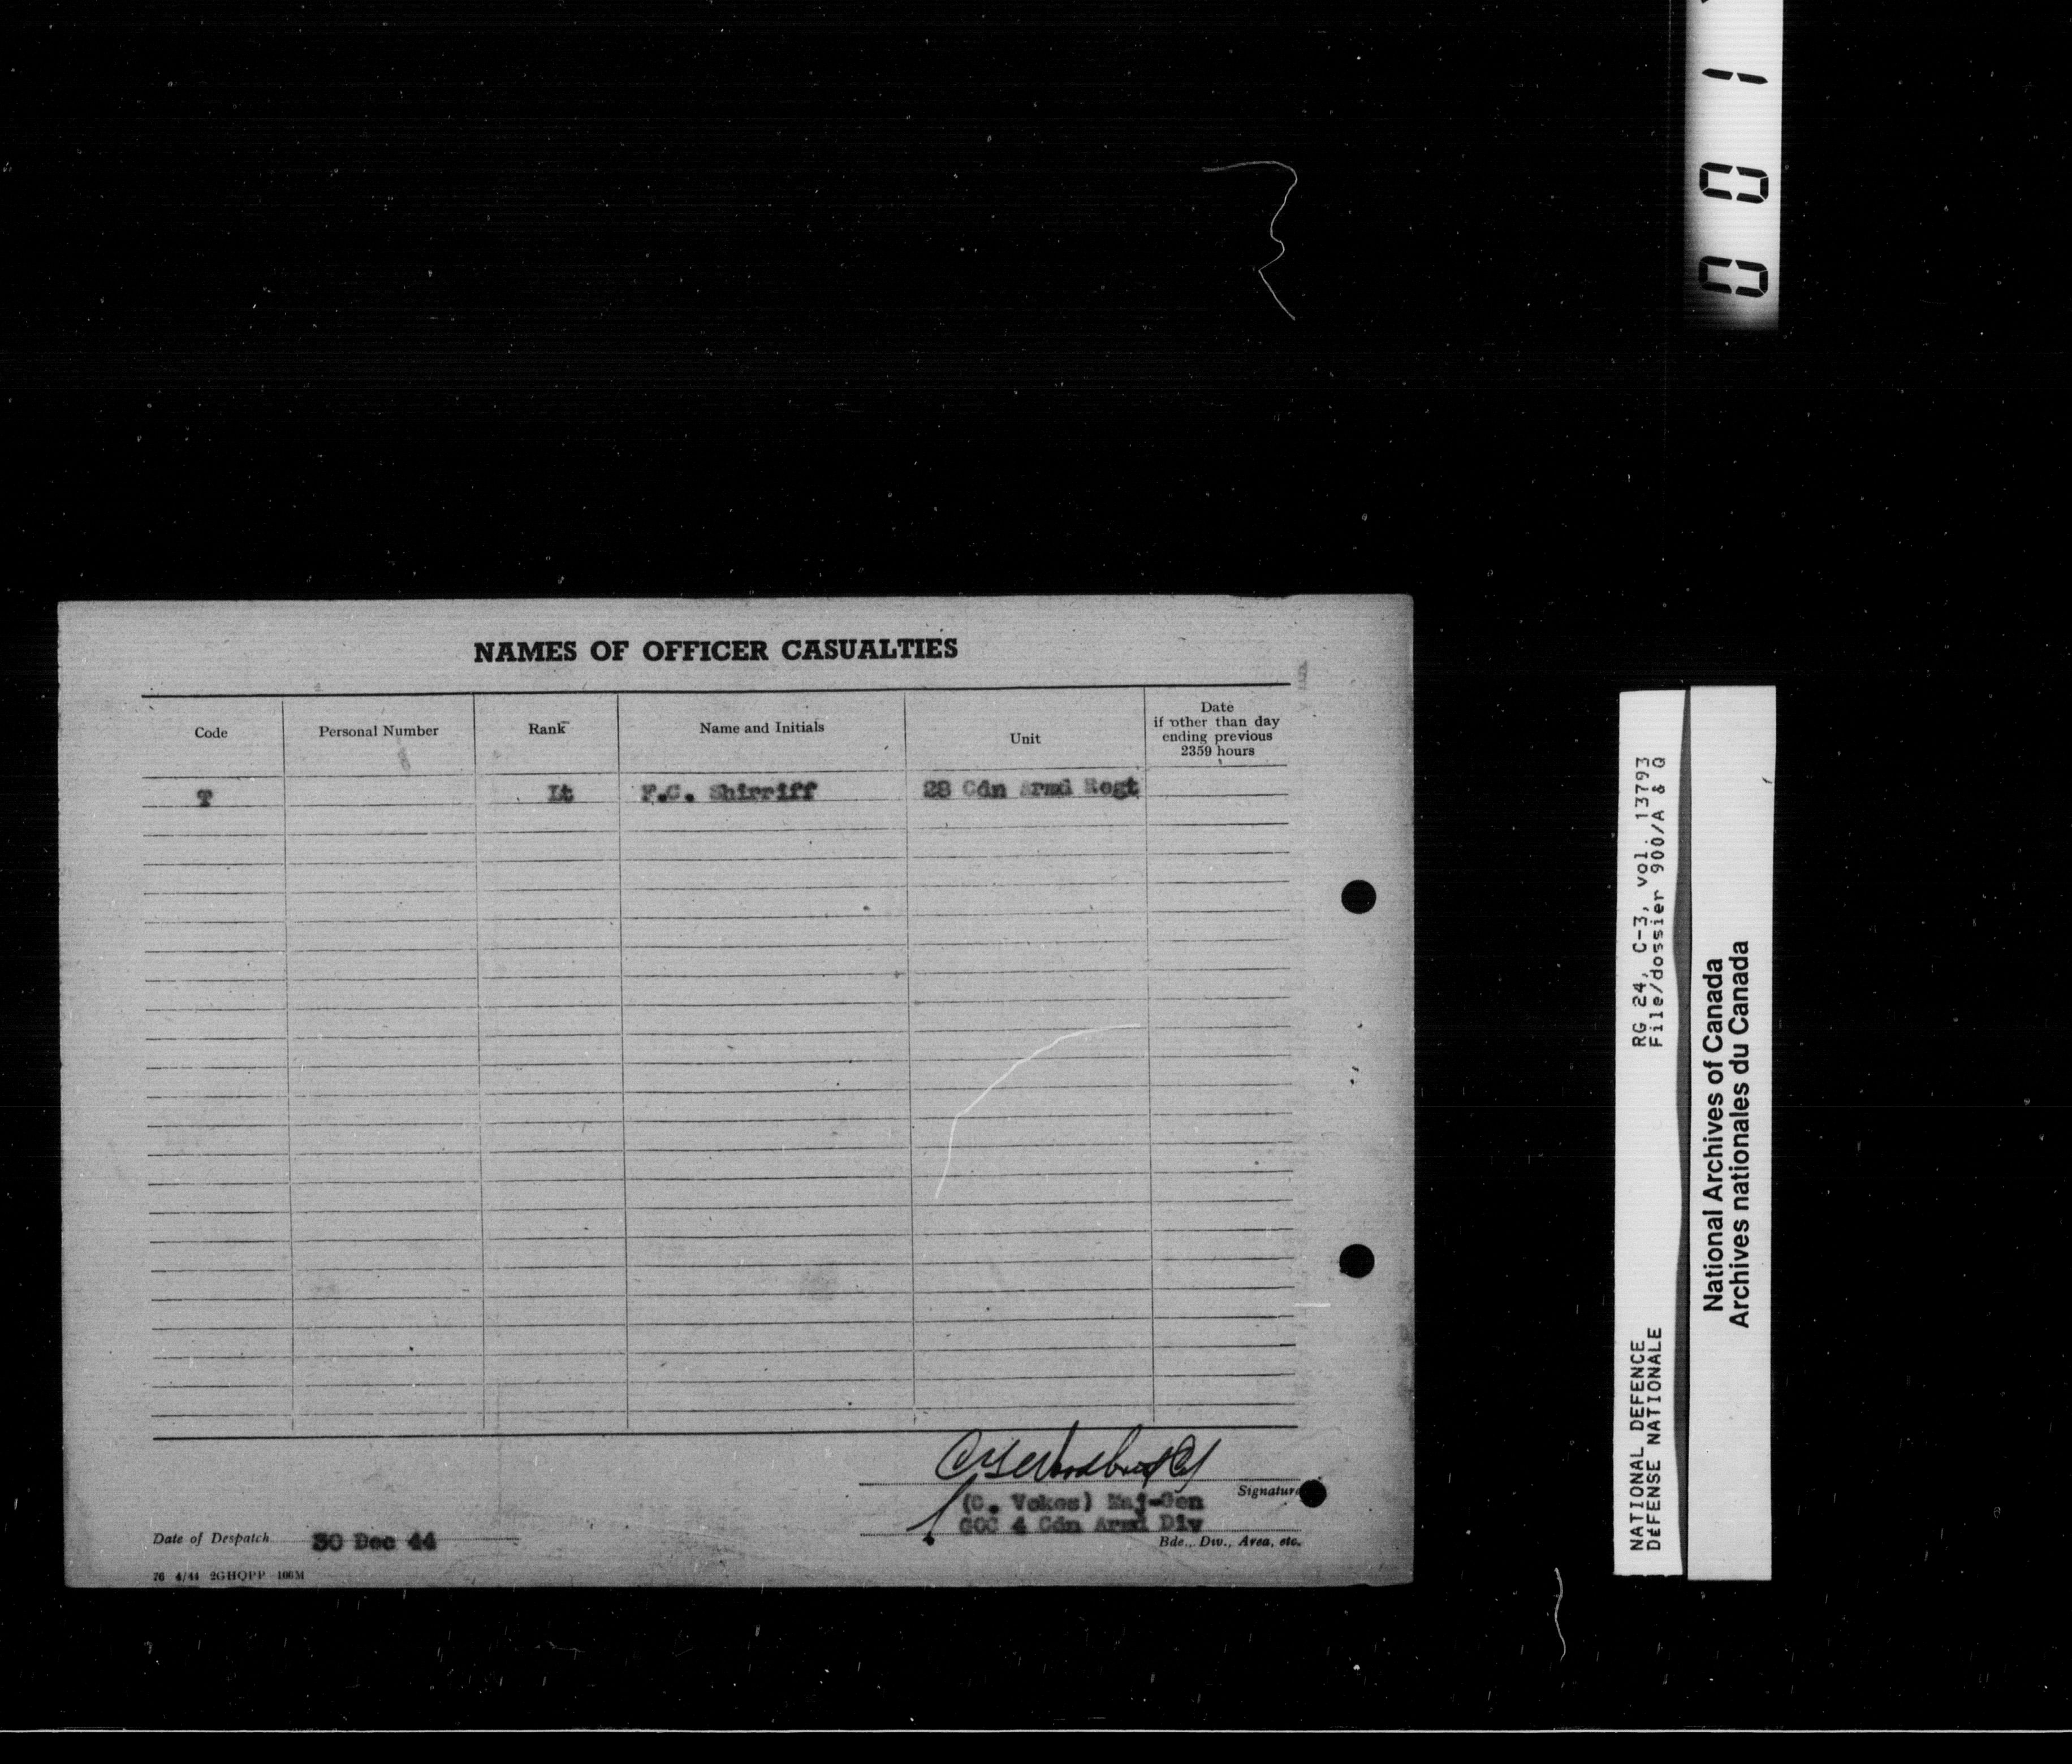 NAMES OF OFFICER CASUALTIES
Code Personal Number Rank Name and Initials Unit Date if other than day ending previous 2359 hours
T Lt F.C. Shirriff 28 Cdn Armd Regt
Signature
(C. Vokes) Maj-Gen
GOC 4 Cdn Armd Div
Bde., Div., Area, etc.
Date of Despatch 30 Dec 44
76 4/44 2GHQPP 100M
NATIONAL DEFENCE RG 24, C-3, vol. 13793
DéFENSE NATIONALE File/dossier 900/A & Q
National Archives of Canada
Archives nationales du Canada
001